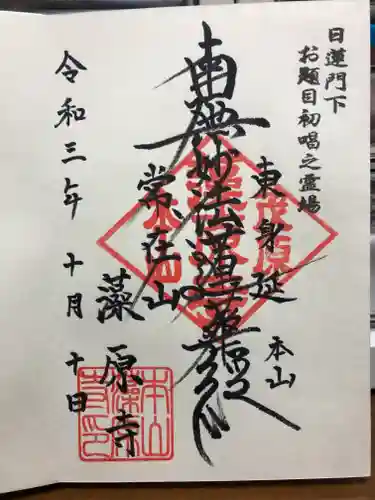 日蓮門下
お題目初唱之霊場
東身延
本山
南無妙法蓮華経
常在山
藻原寺
令和三年 十月 十日